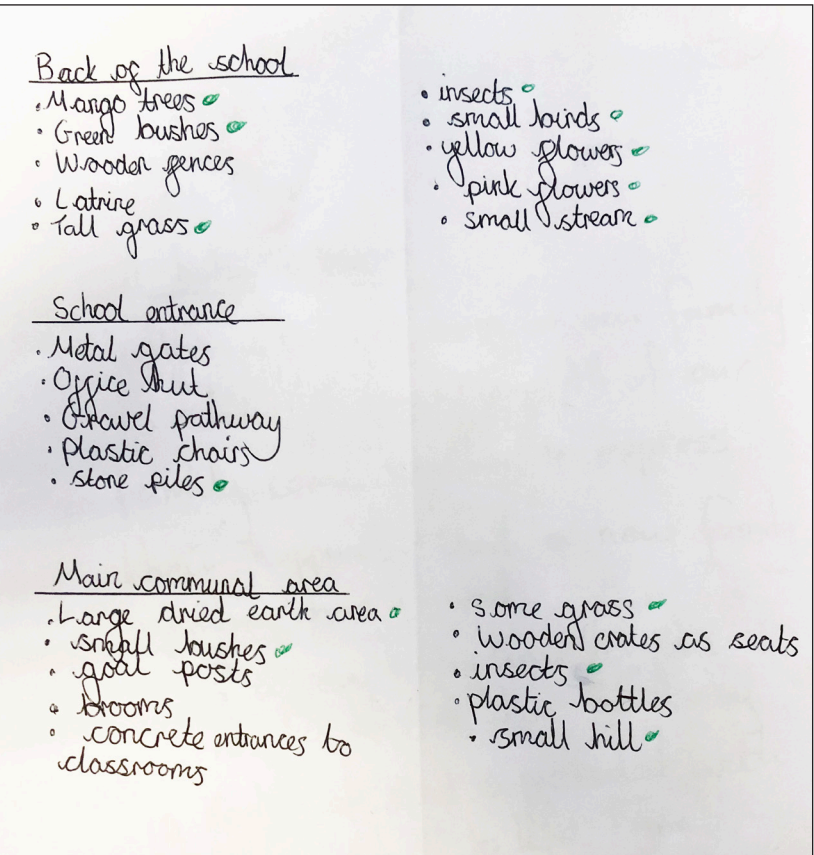 Back of the school
• Mango trees
• Green bushes
• Wooden fences
• Latrine
• Tall grass
• insects
• small birds
• yellow flowers
• pink flowers
• small stream
School entrance
• Metal gates
• Office hut
• Gravel pathway
• Plastic chairs
• stone piles
Main communal area
• Large dried earth area
• small bushes
• goal posts
• brooms
• concrete entrances to
classrooms
• some grass
• wooden crates as seats
• insects
• plastic bottles
• small hill